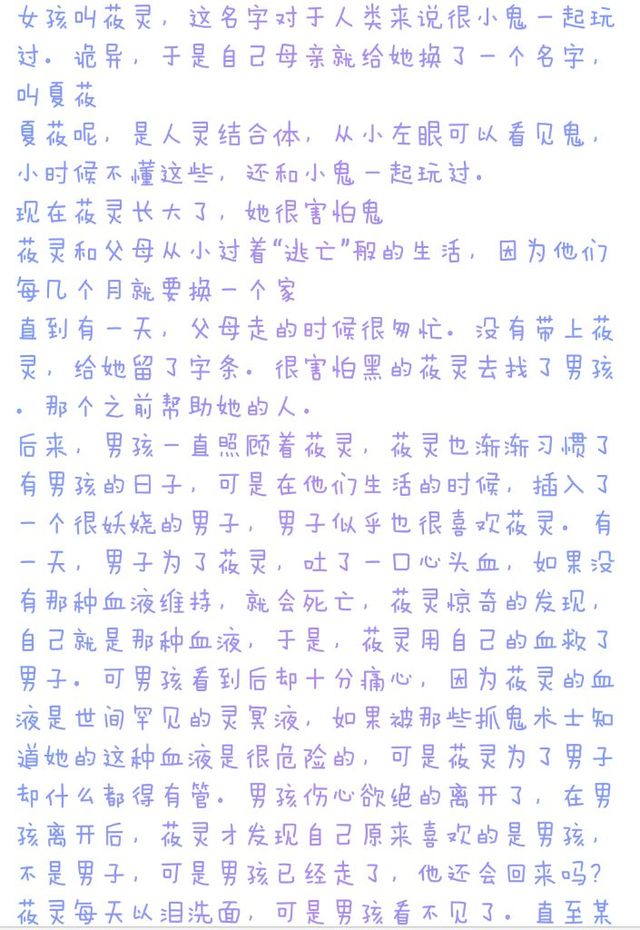 女孩叫莜灵，这名字对于人类来说很小鬼一起玩
过。诡异，于是自己母亲就给她换了一个名字，
叫夏莜
夏莜呢，是人灵结合体，从小左眼可以看见鬼，
小时候不懂这些，还和小鬼一起玩过。
现在莜灵长大了，她很害怕鬼
莜灵和父母从小过着“逃亡”般的生活，因为他们
每几个月就要换一个家
直到有一天，父母走的时候很匆忙。没有带上莜
灵，给她留了字条。很害怕黑的莜灵去找了男孩
。那个之前帮助她的人。
后来，男孩一直照顾着莜灵，莜灵也渐渐习惯了
有男孩的日子，可是在他们生活的时候，插入了
一个很妖娆的男子，男子似乎也很喜欢莜灵。有
一天，男子为了莜灵，吐了一口心头血，如果没
有那种血液维持，就会死亡，莜灵惊奇的发现，
自己就是那种血液，于是，莜灵用自己的血救了
男子。可男孩看到后却十分痛心，因为莜灵的血
液是世间罕见的灵冥液，如果被那些抓鬼术士知
道她的这种血液是很危险的，可是莜灵为了男子
却什么都得有管。男孩伤心欲绝的离开了，在男
孩离开后，莜灵才发现自己原来喜欢的是男孩，
不是男子，可是男孩已经走了，他还会回来吗？
莜灵每天以泪洗面，可是男孩看不见了。直至某